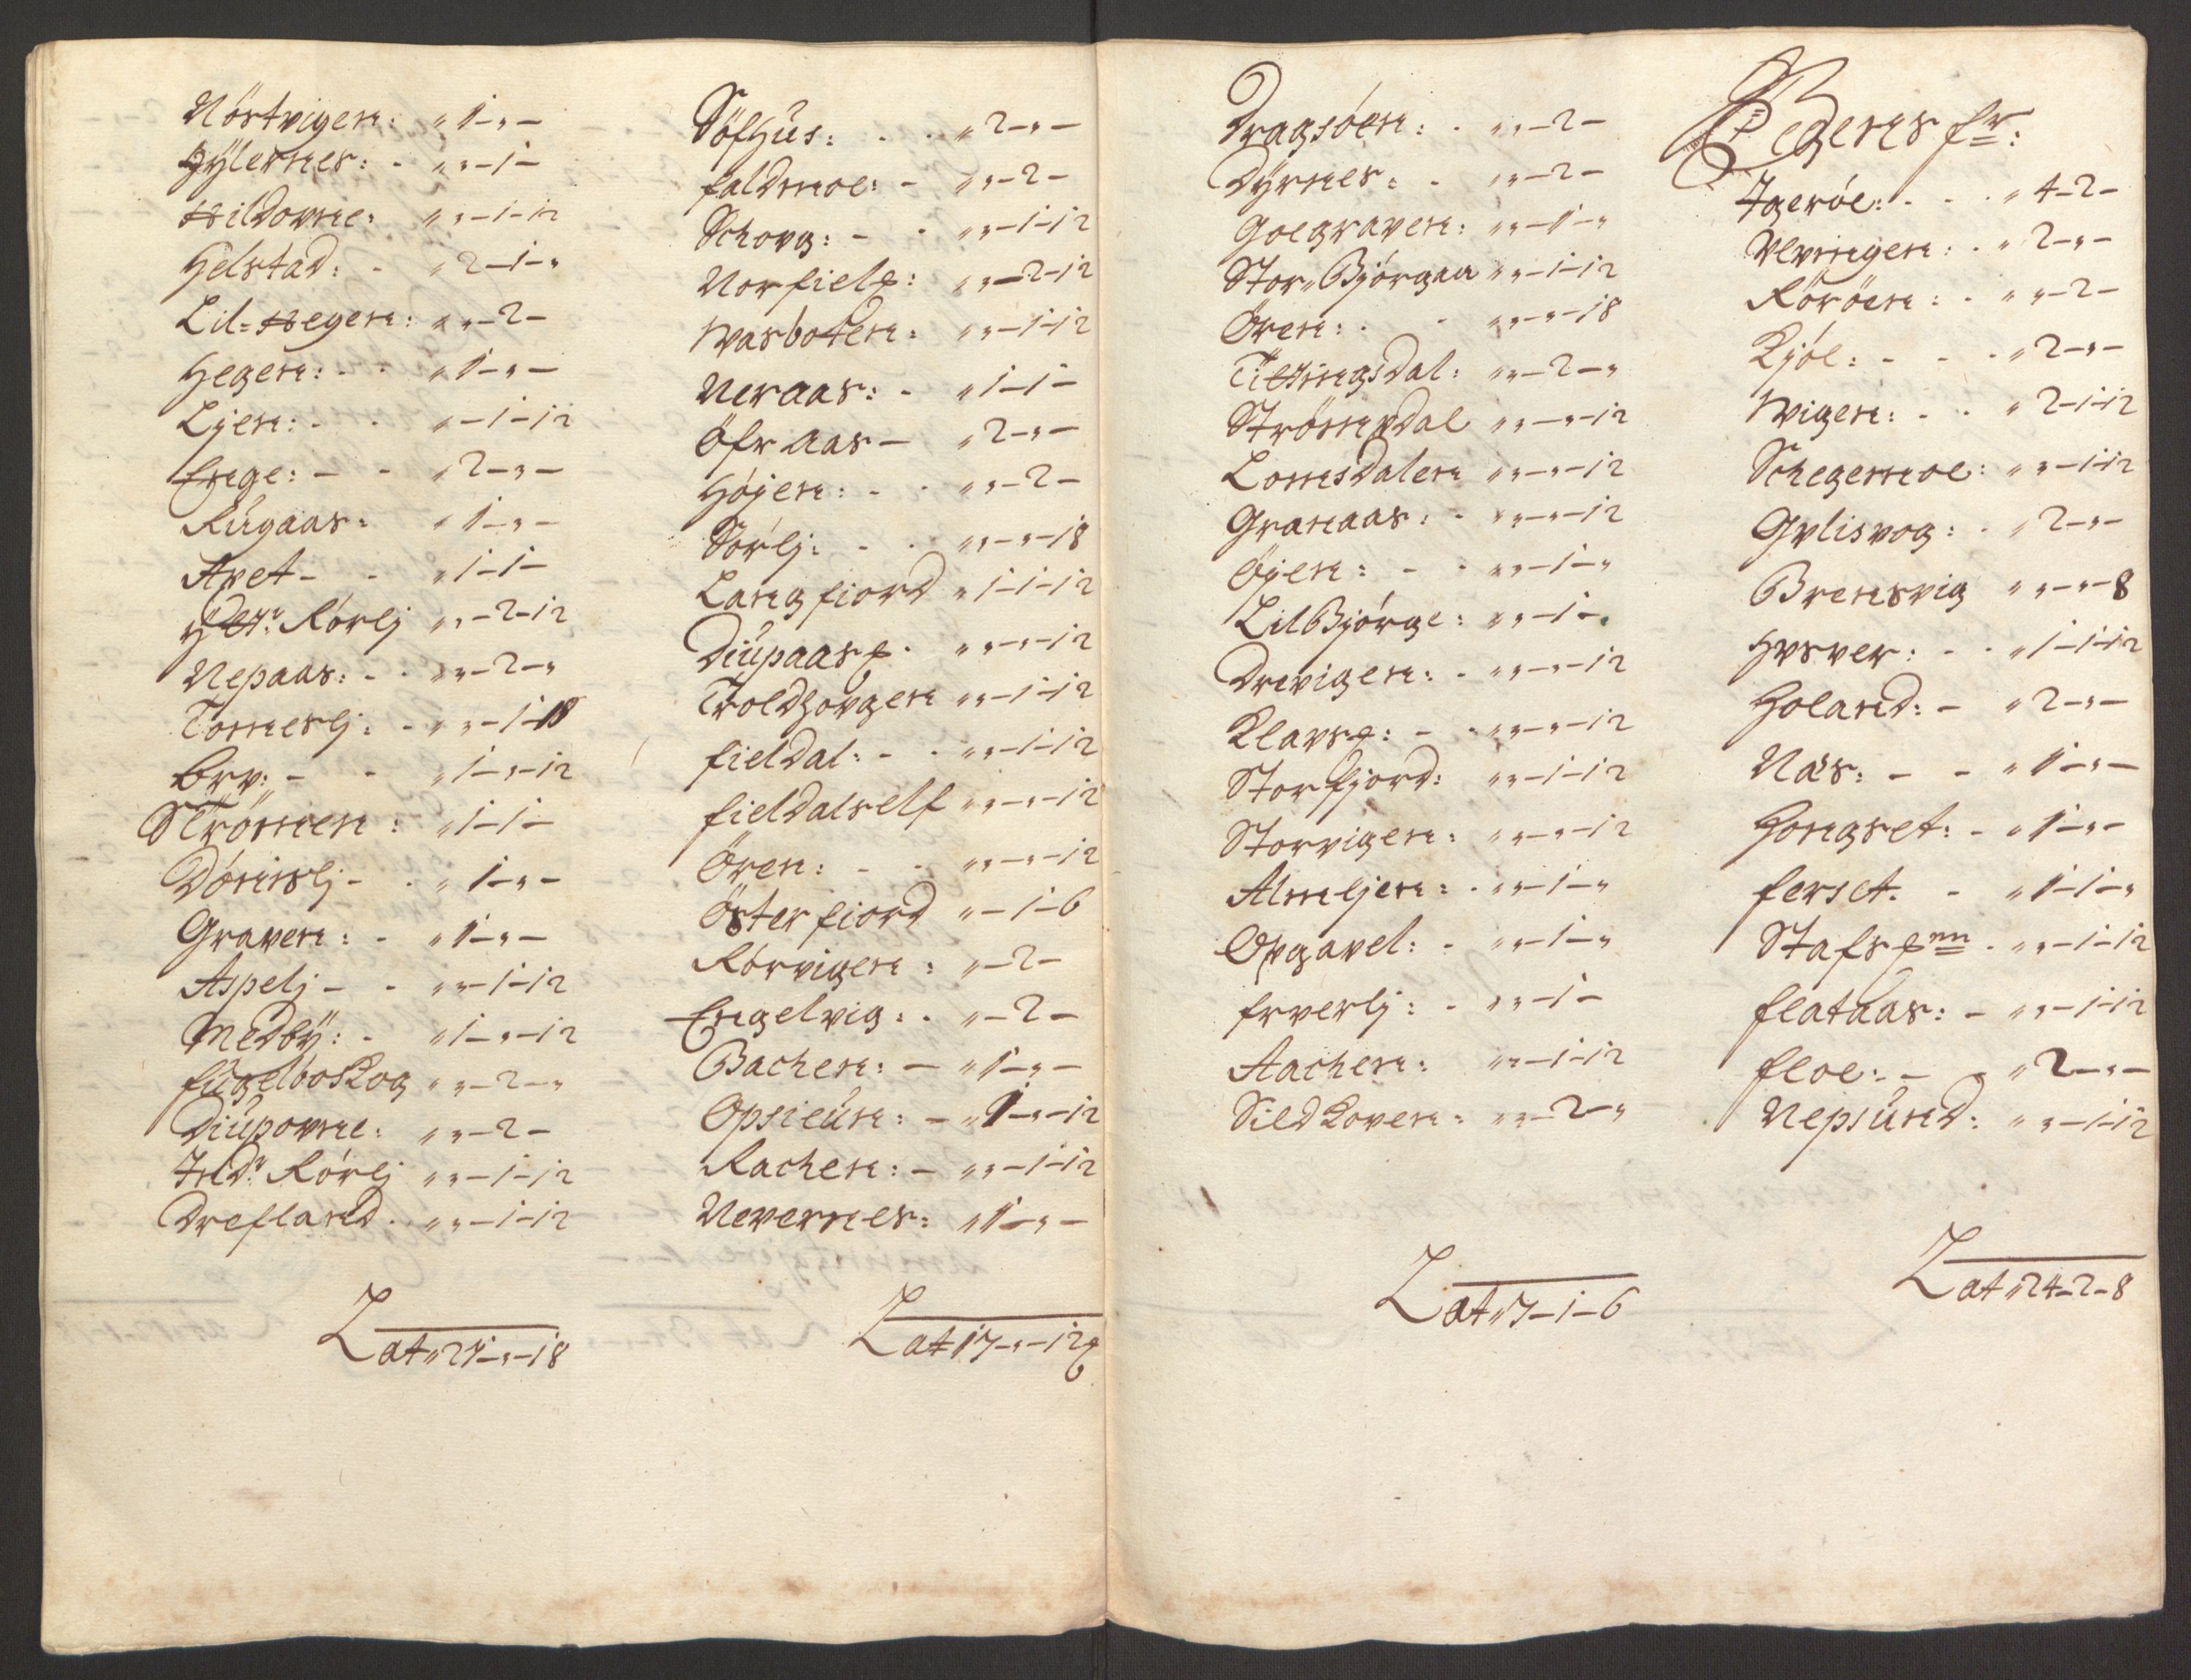 Nöstvigen: „ 1 - „ -
Hÿlernes: - „ „ - 1 -
Hildovne: „ „ - 1 - 12
Helstad: - „ 2 - 1 - „
Lil=Hegen: „ „ - 2 -
Hegen: - - „ 1 - „ -
Lien: - - „ - 1 - 12
Enge: - - „ 2 - „ -
Rugaas: „ 1 - „ -
Avet - - „ 1 - 1 -
Ytr: Rörlj „ „ - 2 - 12
Nepaas: - - „ „ - 2 - „
Tomeslj: - „ „ - 1 - 18
Brv: - - „ 1 - „ - 12
Strömen: „ 1 - 1 -
Döninslj - - „ 1 - „ -
Graven: - „ 1 - „ -
Aspelj - - „ „ - 1 - 12
Medbÿ: - „ 1 - „ - 12
fugelboskog „ „ - 2 - „
Diupovne: „ „ - 2 -
Indr: Rörlj „ „ - 1 - 12
Drefland - „ „ - 1 - 12
Lat „ 21 - „ - 18
Söfhus: - - „ 2 - „ -
faldmoe: - „ „ - 2 -
Schovg: - - „ „ - 1 - 12
Norfield: „ „ - 2 - 12
Wasboten: „ „ - 1 - 12
Neraas: - „ 1 - 1 -
Öfr Aas - „ 2 - „ -
Höjen: - - „ „ - 2 -
Sörlj: - - „ „ - „ - 18
Langfiord „ 1 - 1 - 12
Diupaas - „ „ - „ - 12
Troldhovgen „ „ - 1 - 12
fieldal: - - „ „ - 1 - 12
fieldalself „ „ - „ - 12
Ören: - - „ „ - „ - 12
Österfiord „ - 1 - 6
Rörvigen: „ - 2 -
Engelvig: - „ - 2 -
Bachen: - „ 1 - „ -
Opsieun: - „ 1 - „ - 12
Rachen: - „ „ - 1 - 12
Nevernes: „ 1 - „ -
Lat 17 - „ - 12
Dragsöen: - „ „ - 2 -
Dÿrnes: - „ „ - 2 -
Goegraven: „ „ - 1 - „
Stor „ Bjórgaa „ „ - 1 - 12
Ören: - - „ „ - „ - 18
Titingsdal: „ „ - 2 - „
Strömdal „ „ - „ - 12
Lomsdalen „ „ - „ - 12
Granaas: - „ „ - „ - 12
Öjen: - - „ „ - 1 - „
Lil Bjórge: „ „ - 1 -
Drevigen: - „ „ - „ - 12
Klavs: - - „ „ - „ - 12
Storfjord: „ „ - 1 - 12
Storvigen: „ „ - „ - 12
Almljen: - „ „ - 1 - „
Opgavel: - „ „ - 1 - „
frverlj: - „ „ - 1 -
Aachen: „ „ - 1 - 12
Sildhoven: „ „ - 2 - „
Lat „ 7 - 1 - 6
Pegens fr:
Igeröe: - - - „ 4 - 2 -
Ulvingen: - „ 2 - „ -
Röröen: - „ „ - 2 -
Kjöl: - - - „ 2 - „ -
Wigen: - - „ 2 - 1 - 12
Schegemoe: „ „ - 1 - 12
Gvlisvog: - „ 2 - „ -
Brensvig „ „ - „ - 8
Hvsver: - - „ 1 - 1 - 12
Holand: - „ 2 - „ -
Næs: - - „ 1 - „ -
Hongset: - „ 1 - „ -
ferset. - „ 1 - 1 - „
Stafs - „ „ - 1 - 12
flataas: - „ „ - 1 - 12
floe: - - „ 2 - „ -
Nepsund: „ „ - 1 - 12
Lat „ 24 - 2 - 8